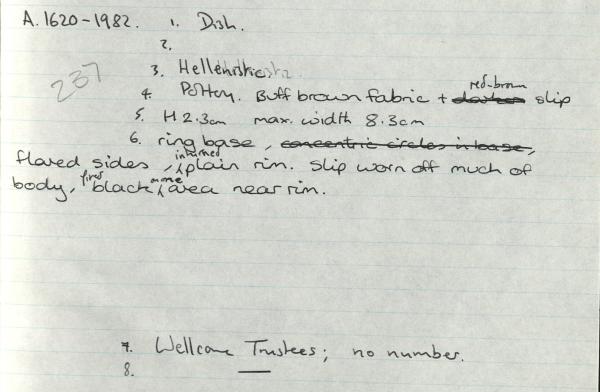 A. 1620-1982. 1. Dish.
2.
3. Hellenistic
237
4. Pottery. Buff brown fabric + red-brown slip
5. H 2.3cm max. width 8.3cm
6. ring base, concentric circles in base,
flared sides, inturned plain rim. Slip worn off much of
body, fired black in one area near rim.
7. Wellcome Trustees; no number.
8. —